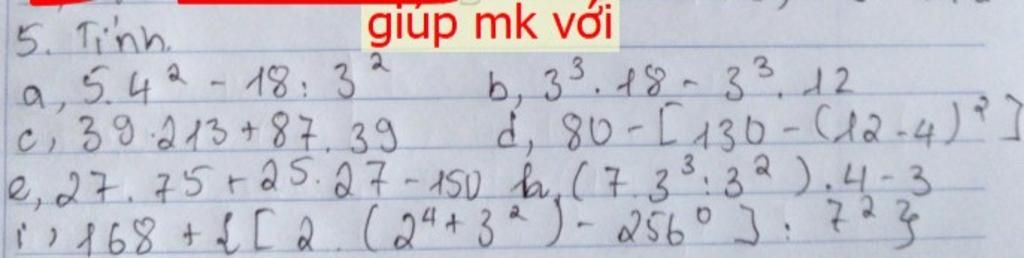 giúp mk với
5. Tính.
a, 5.4² - 18 : 3² b, 3³ . 18 - 3³ . 12
c, 39.213 + 87.39 d, 80 - [130 - (12 - 4)²]
e, 27.75 + 25.27 - 150 h, (7.3³:3²).4-3
i, 168 + {[2.(2⁴ + 3²) - 256⁰] : 7²}